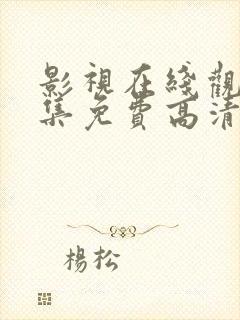 影視在綫觀
集免費高清
楊松